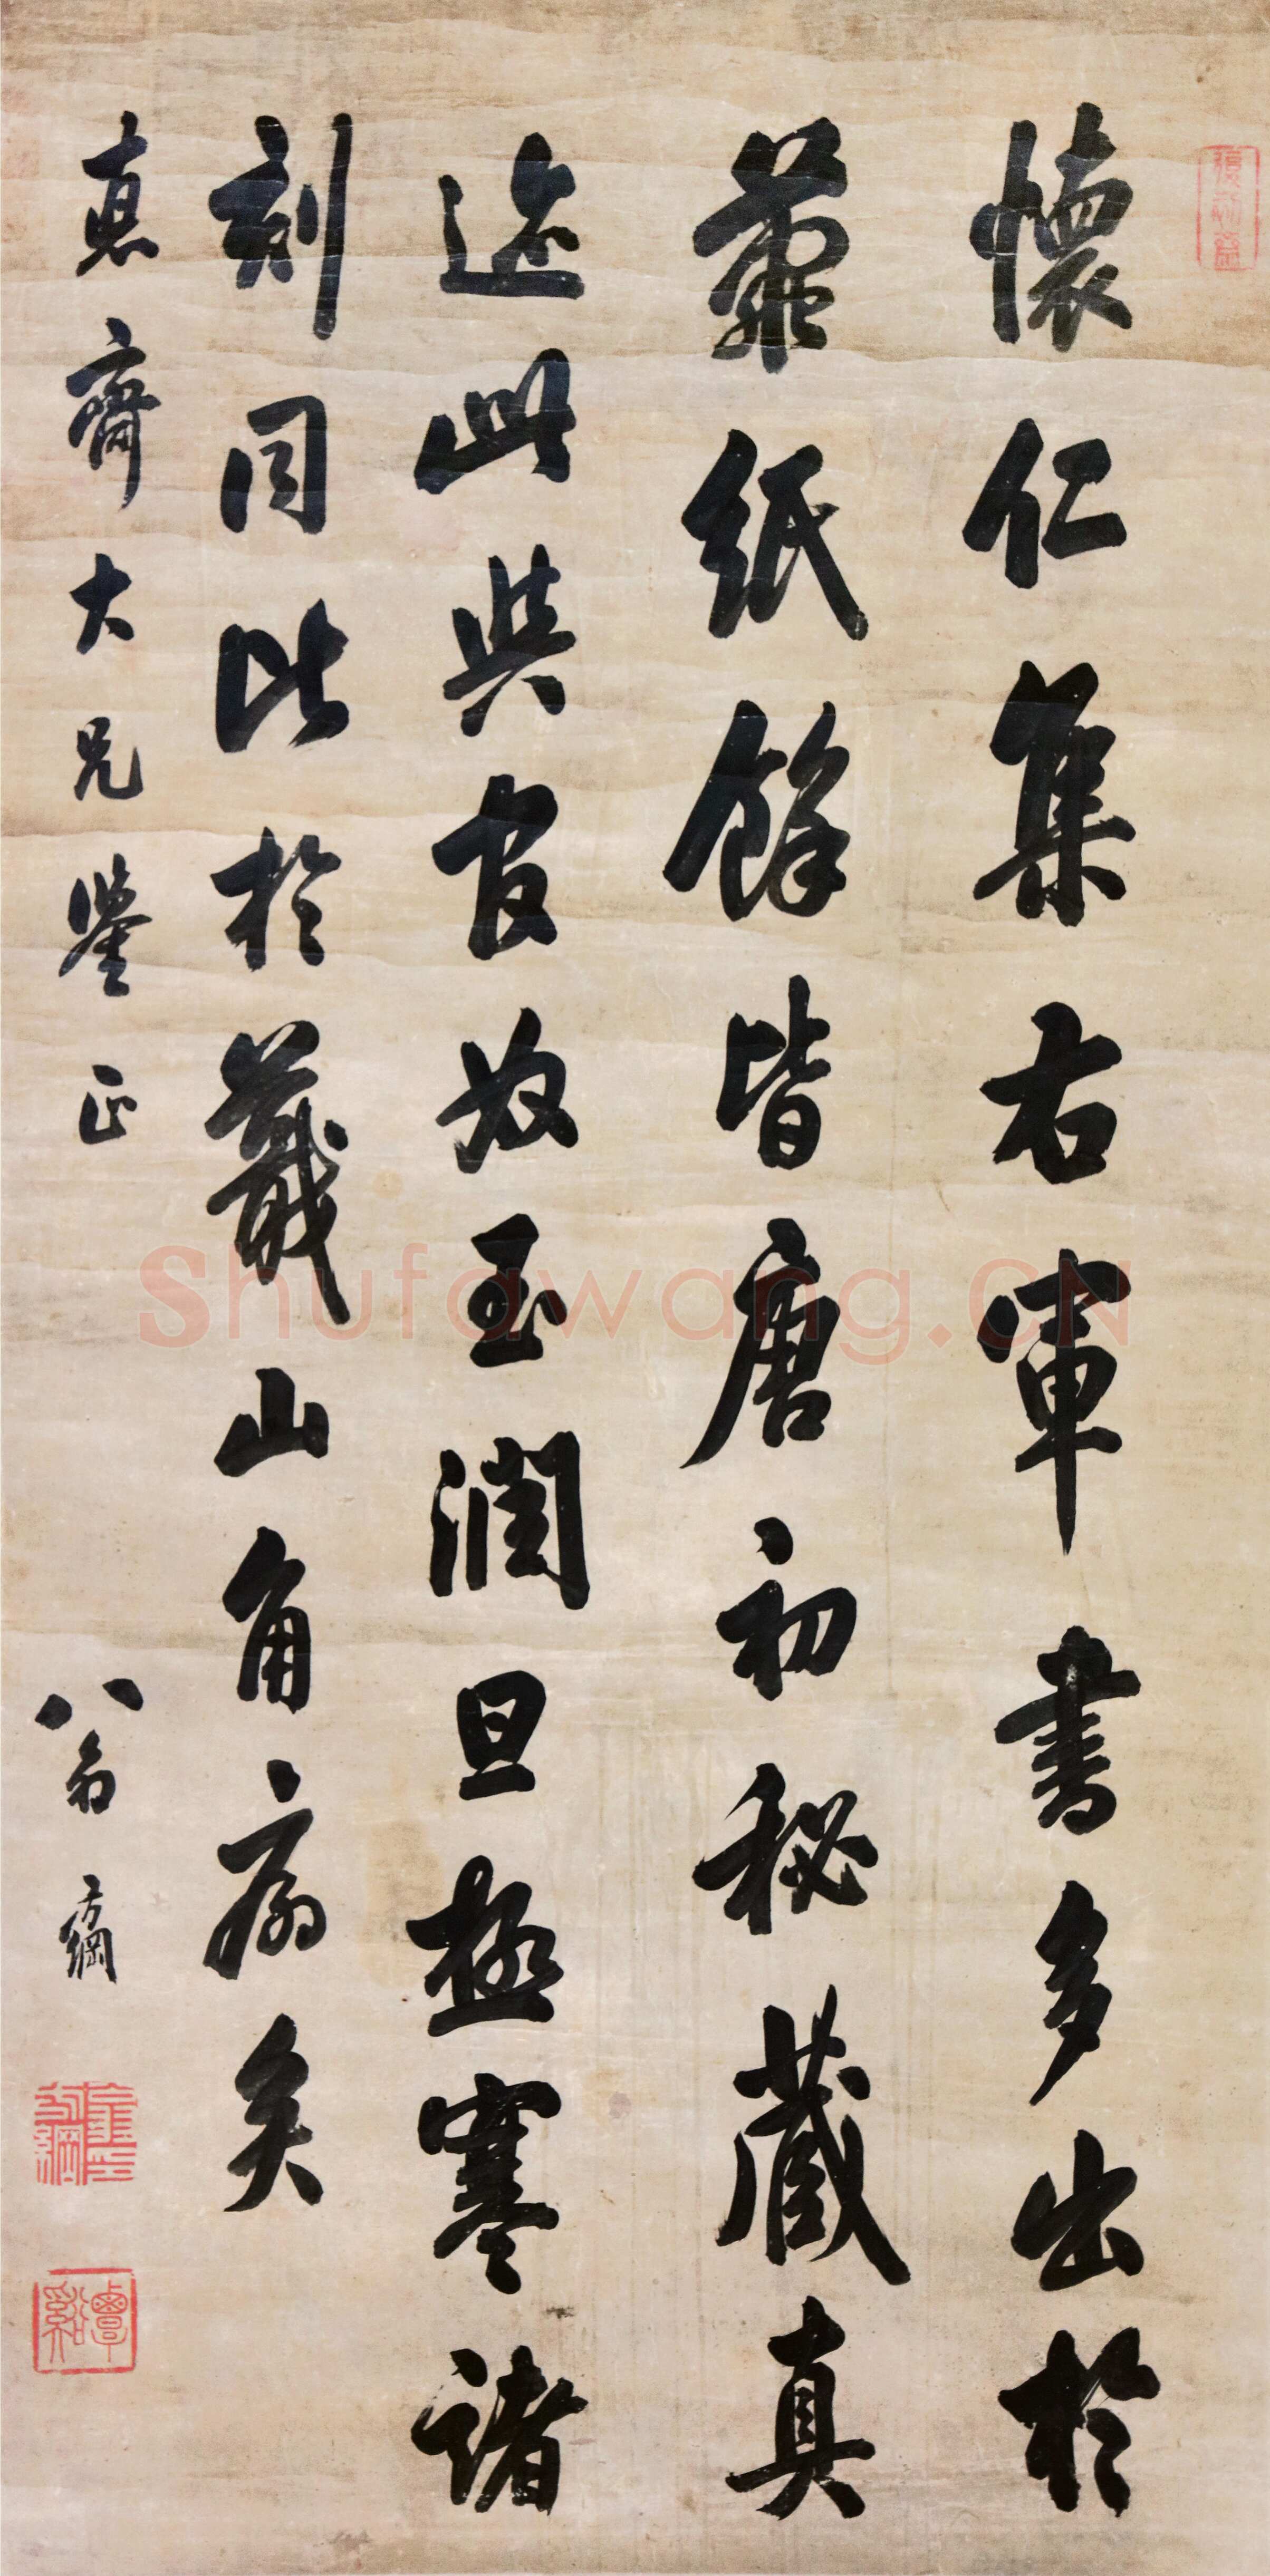 懷仁集右軍書多出於
繭紙餘皆唐初秘藏真
迹此與官奴玉潤旦極寒諸
刻同比於蕺山角扇矣
惪齋大兄鑒正
翁方綱
覃谿
Shufawang.CN